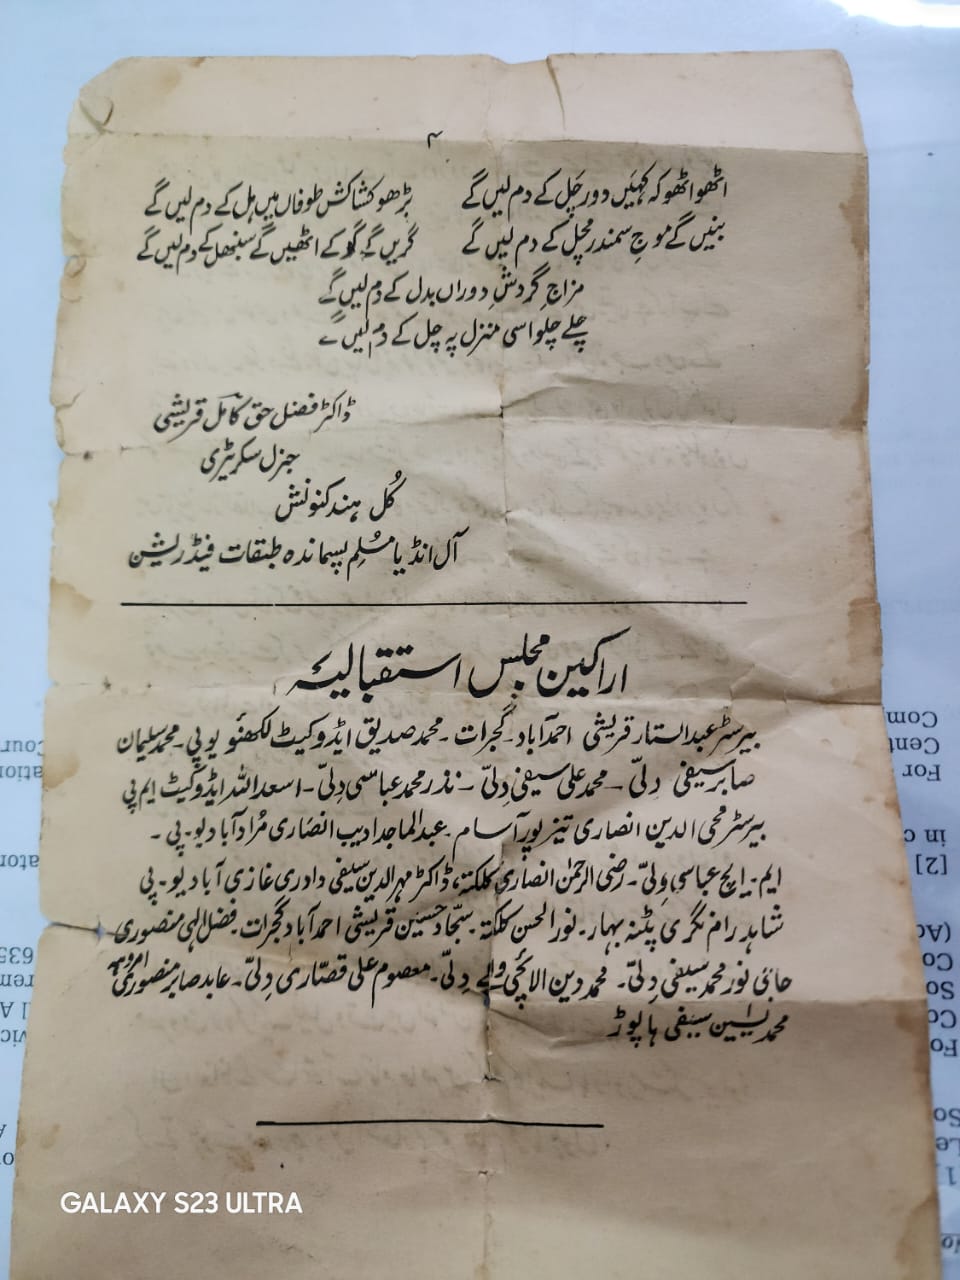 ۴
اٹھو اٹھو کہ کہیں دور چل کے دم لیں گے بڑھو کشاکش طوفاں میں ہل کے دم لیں گے
بنیں گے موجِ سمندر مچل کے دم لیں گے گریں گے گر کے اٹھیں گے سنبھل کے دم لیں گے
مزاجِ گردشِ دوراں بدل کے دم لیں گے
چلے چلو اسی منزل پہ چل کے دم لیں گے
ڈاکٹر فضل حق کامل قریشی
جنرل سکریٹری
کُل ہند کنونشن
آل انڈیا مسُلم پسماندہ طبقات فیڈریشن
اراکین مجلس استقبالیہ
بیرسٹر عبدالستار قریشی احمد آباد۔ گجرات۔ محمد صدیق ایڈوکیٹ لکھنؤ یو پی۔ محمد سلیمان
صابر سیفی دلّی۔ محمد علی سیفی دلّی۔ نذر محمد عباسی دلّی۔ اسعد اللہ ایڈوکیٹ ایم پی
بیرسٹر محی الدین انصاری تیز پور آسام۔ عبدالماجد ادیب انصاری مُراد آباد یو۔ پی۔
ایم۔ ایچ عباسی دلّی۔ رضی الرحمٰن انصاری کلکتہ، ڈاکٹر مہر الدین سیفی دادری غازی آباد یو۔ پی
شاہد رام نگری پٹنہ بہار۔ نور الحسن کلکتہ۔ سجاد حسین قریشی احمد آباد گجرات۔ فضل الٰہی منصوری
حاجی نور محمد سیفی دلّی۔ محمد دین الائچی والے دلّی۔ معصوم علی قصّاری دلّی۔ عابد صابر منصوری امروہہ
محمد یٰسین سیفی ہاپوڑ
GALAXY S23 ULTRA